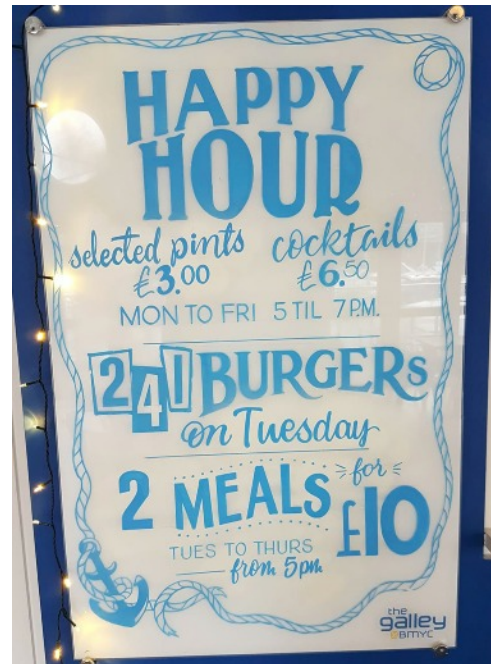 HAPPY
HOUR
selected pints cocktails
£3.00 £6.50
MON TO FRI 5 TIL 7 P.M.
241 BURGERS
on Tuesday
2 MEALS for £10
TUES TO THURS
from 5pm
the
galley
@BMYC